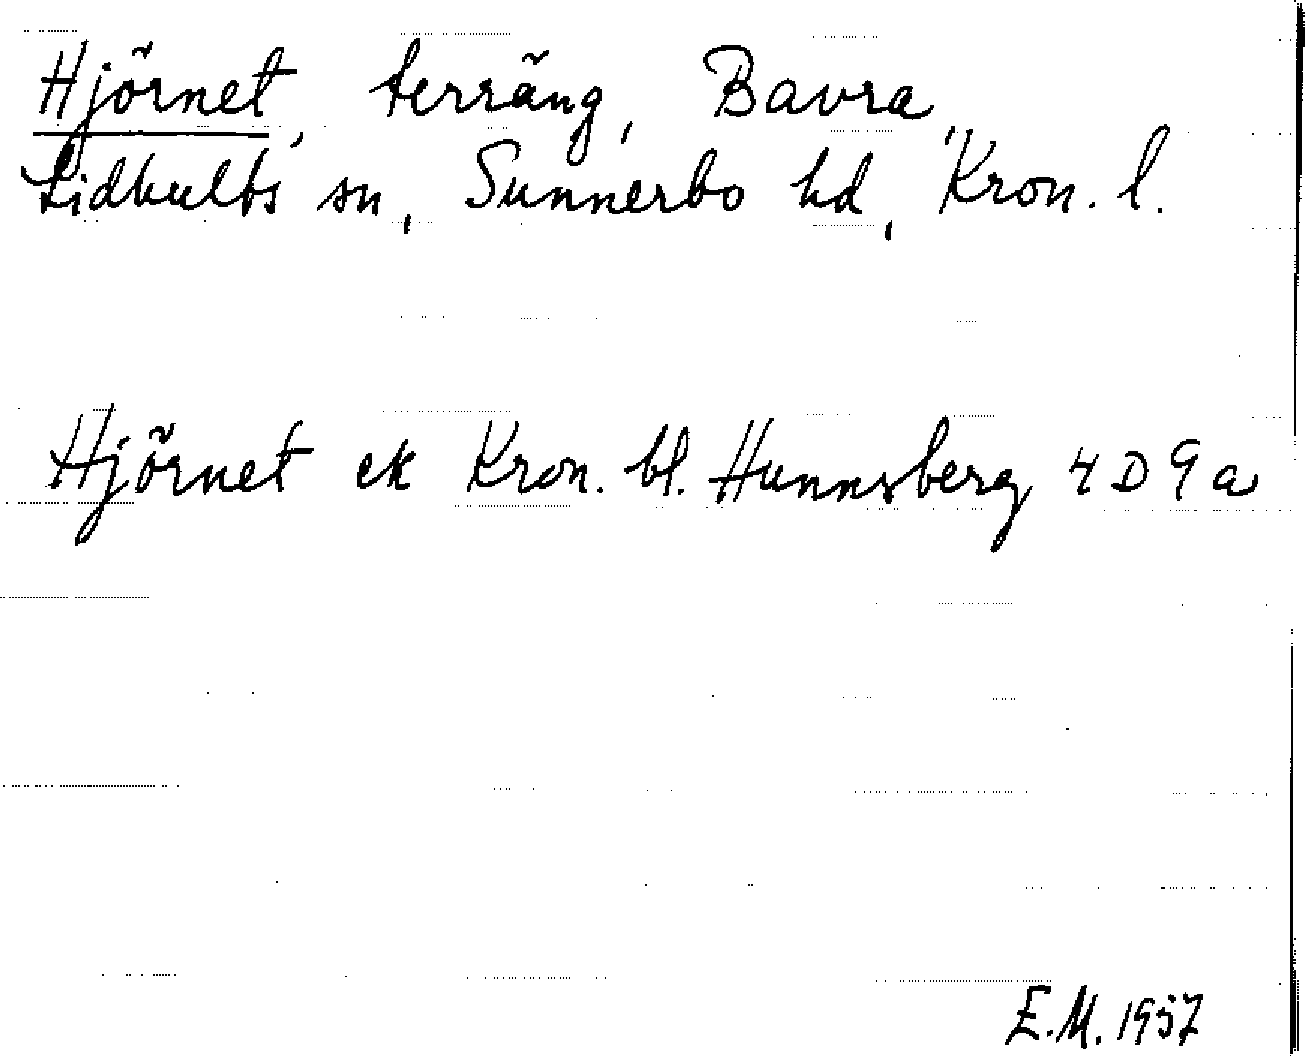 Hjörnet, terräng, Bavra,
Lidhults sn, Sunnerbo hd, Kron. l.
Hjörnet ek Kron. bl. Hunnsberg 4 D 9 a
E.M. 1957